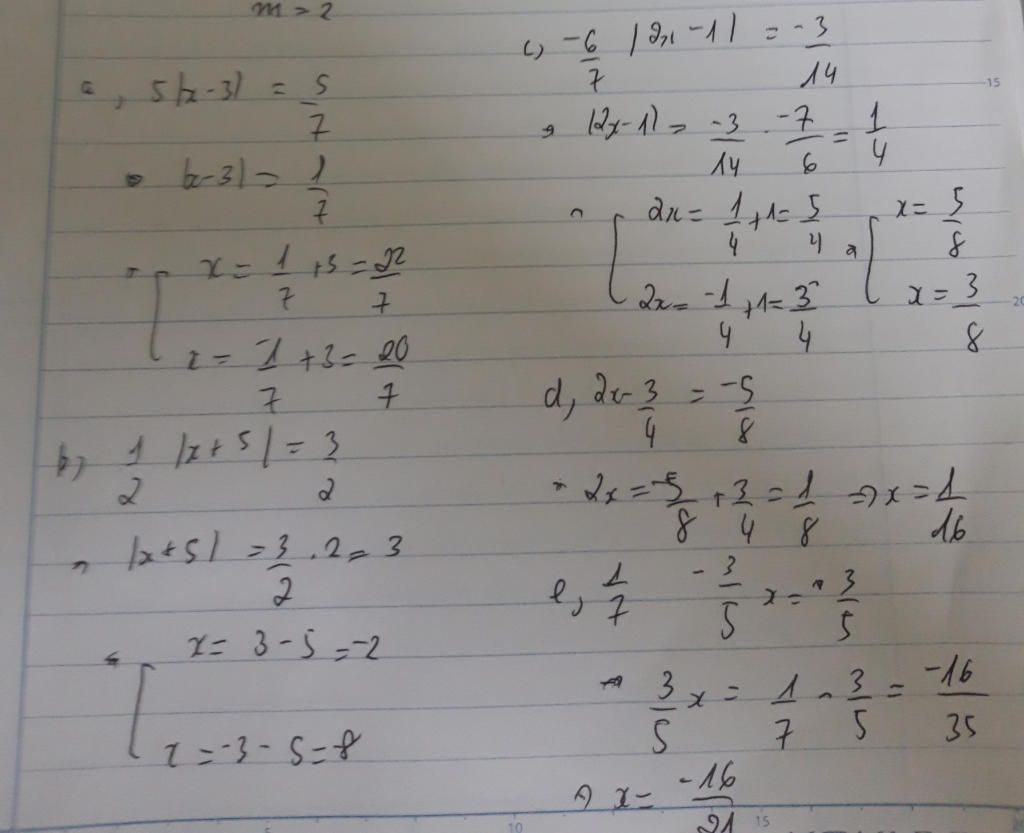 m = 2
a, 5|x-3| = 5/7
=> |x-3| = 1/7
=> [ x = 1/7 + 3 = 22/7
x = -1/7 + 3 = 20/7
b, 1/2 |x+5| = 3/2
=> |x+5| = 3/2 . 2 = 3
=> [ x = 3 - 5 = -2
x = -3 - 5 = -8
c, -6/7 |2x-1| = -3/14
=> |2x-1| = -3/14 . -7/6 = 1/4
=> [ 2x = 1/4 + 1 = 5/4 => [ x = 5/8
2x = -1/4 + 1 = 3/4 x = 3/8
d, 2x - 3/4 = -5/8
=> 2x = -5/8 + 3/4 = 1/8 => x = 1/16
e, 1/7 - 3/5 x = 3/5
=> 3/5 x = 1/7 - 3/5 = -16/35
=> x = -16/21
15
20
5
10
15
20